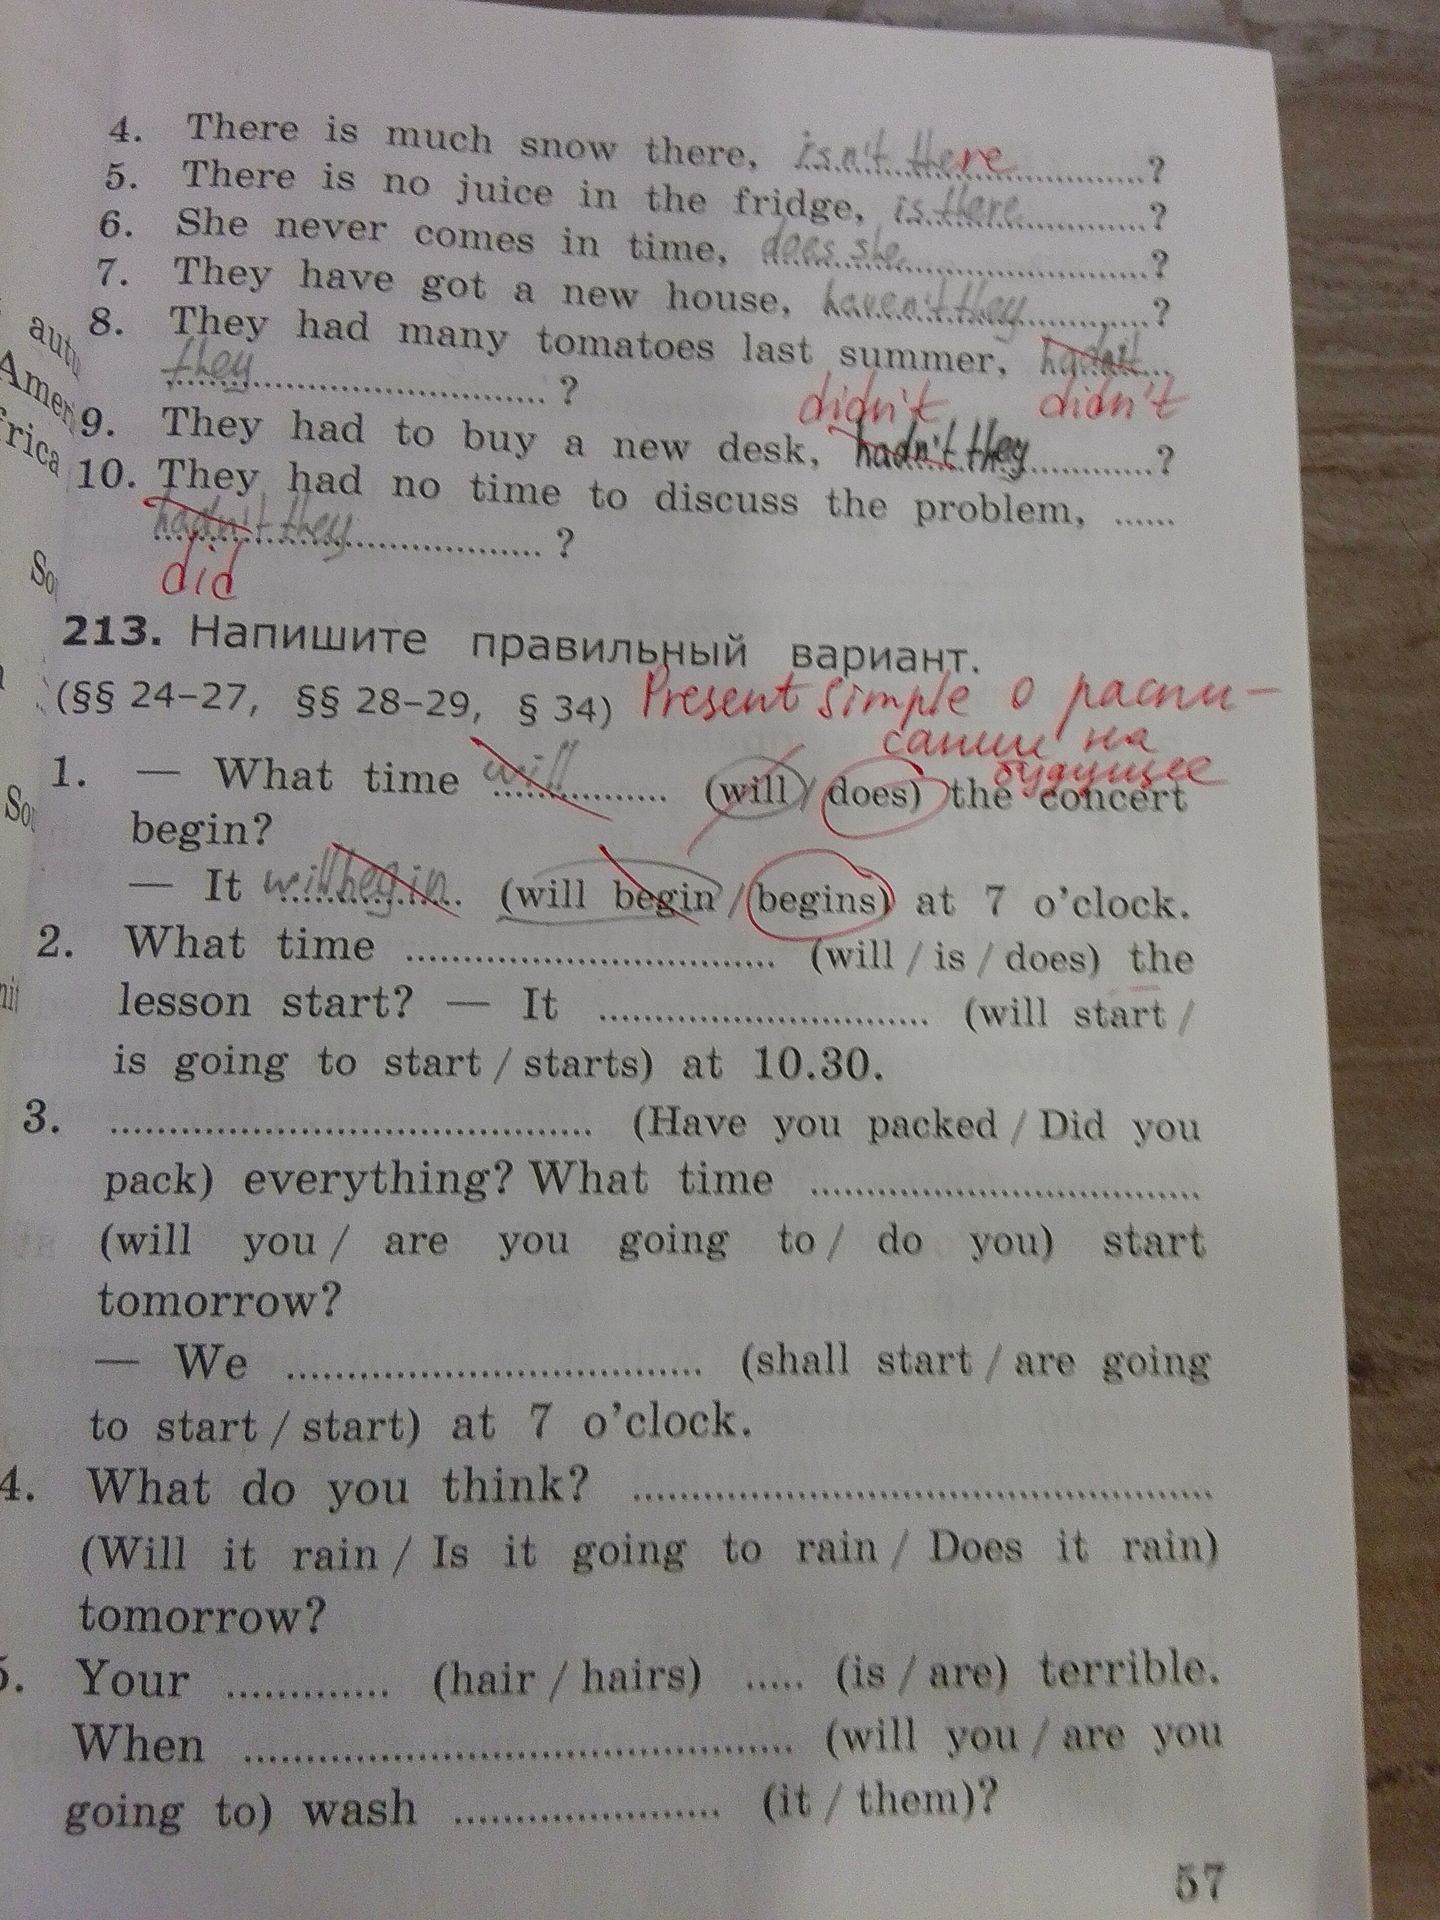 4. There is much snow there, isn't there ?
5. There is no juice in the fridge, is there ?
6. She never comes in time, does she ?
7. They have got a new house, haven't they ?
8. They had many tomatoes last summer, hadn't
they ?
didn't didn't
9. They had to buy a new desk, hadn't they ?
10. They had no time to discuss the problem, ......
hadn't they ?
did
213. Напишите правильный вариант.
(§§ 24–27, §§ 28–29, § 34) Present Simple о распи-
сании на
будущее
1. — What time will (will / does) the concert
begin?
— It will begin (will begin / begins) at 7 o'clock.
2. What time ........ (will / is / does) the
lesson start? — It ........ (will start /
is going to start / starts) at 10.30.
3. ........ (Have you packed / Did you
pack) everything? What time ........
(will you / are you going to / do you) start
tomorrow?
— We ........ (shall start / are going
to start / start) at 7 o'clock.
4. What do you think? ........
(Will it rain / Is it going to rain / Does it rain)
tomorrow?
5. Your ........ (hair / hairs) ..... (is / are) terrible.
When ........ (will you / are you
going to) wash ........ (it / them)?
57